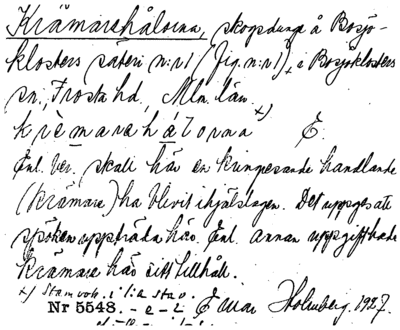 Krämarehålorna, skogsdunge å Bosjö-
klosters säteri n:r 1 (Jig. n:r 1), i Bosjöklosters
sn, Frosta hd, Mlm. län. x)
kremarehålorna E.
Enl. ver. skall här en kringresande handlande
(krämare) ha blivit ihjälslagen. Det uppges att
spöken uppträda här. Enl. annan uppgift hade
krämare här sitt tillhåll.
x) Stamvok. i
Nr 5548. - e - i Einar Holmberg. 1927.